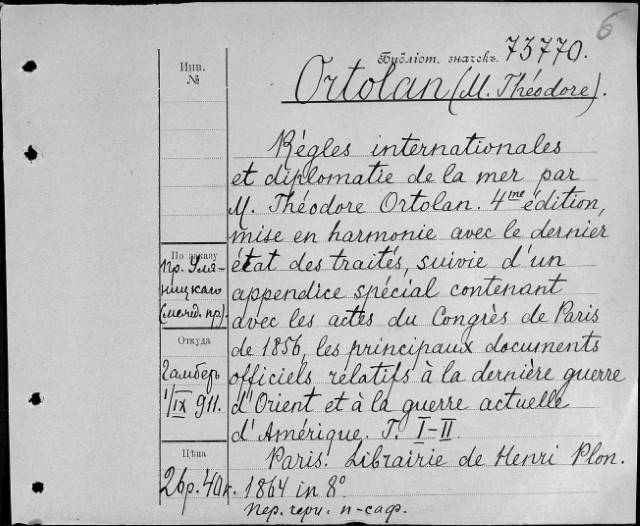 6
Библіот. значекъ. 73770.
Инв.
№
Ortolan (M. Théodore).
Régles internationales
et diplomatie de la mer par
M. Théodore Ortolan. 4me édition,
mise en harmonie avec le dernier
état des traités, suivie d'un
appendice spécial contenant
avec les actes du Congrès de Paris
de 1856, les principaux documents
officiels relatifs à la dernière guerre
d'Orient et à la guerre actuelle
d'Amérique. T. I-II.
Paris. Librairie de Henri Plon.
1864 in 8°.
пер. черн. п-саф.
По заказу
пр. Уля-
ницкаго
(межд. пр).
Откуда
Гамберъ
1/IX 911.
Цѣна
26р. 40к.